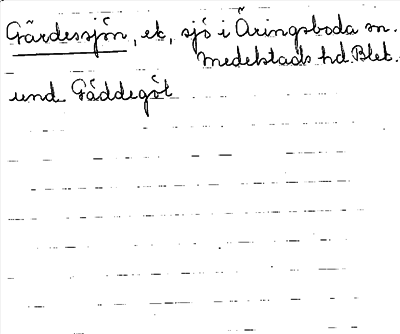 Gärdessjön, ek, sjö i Åringsboda sn.
Medelstads hd. Blek.
und. Gäddegöl